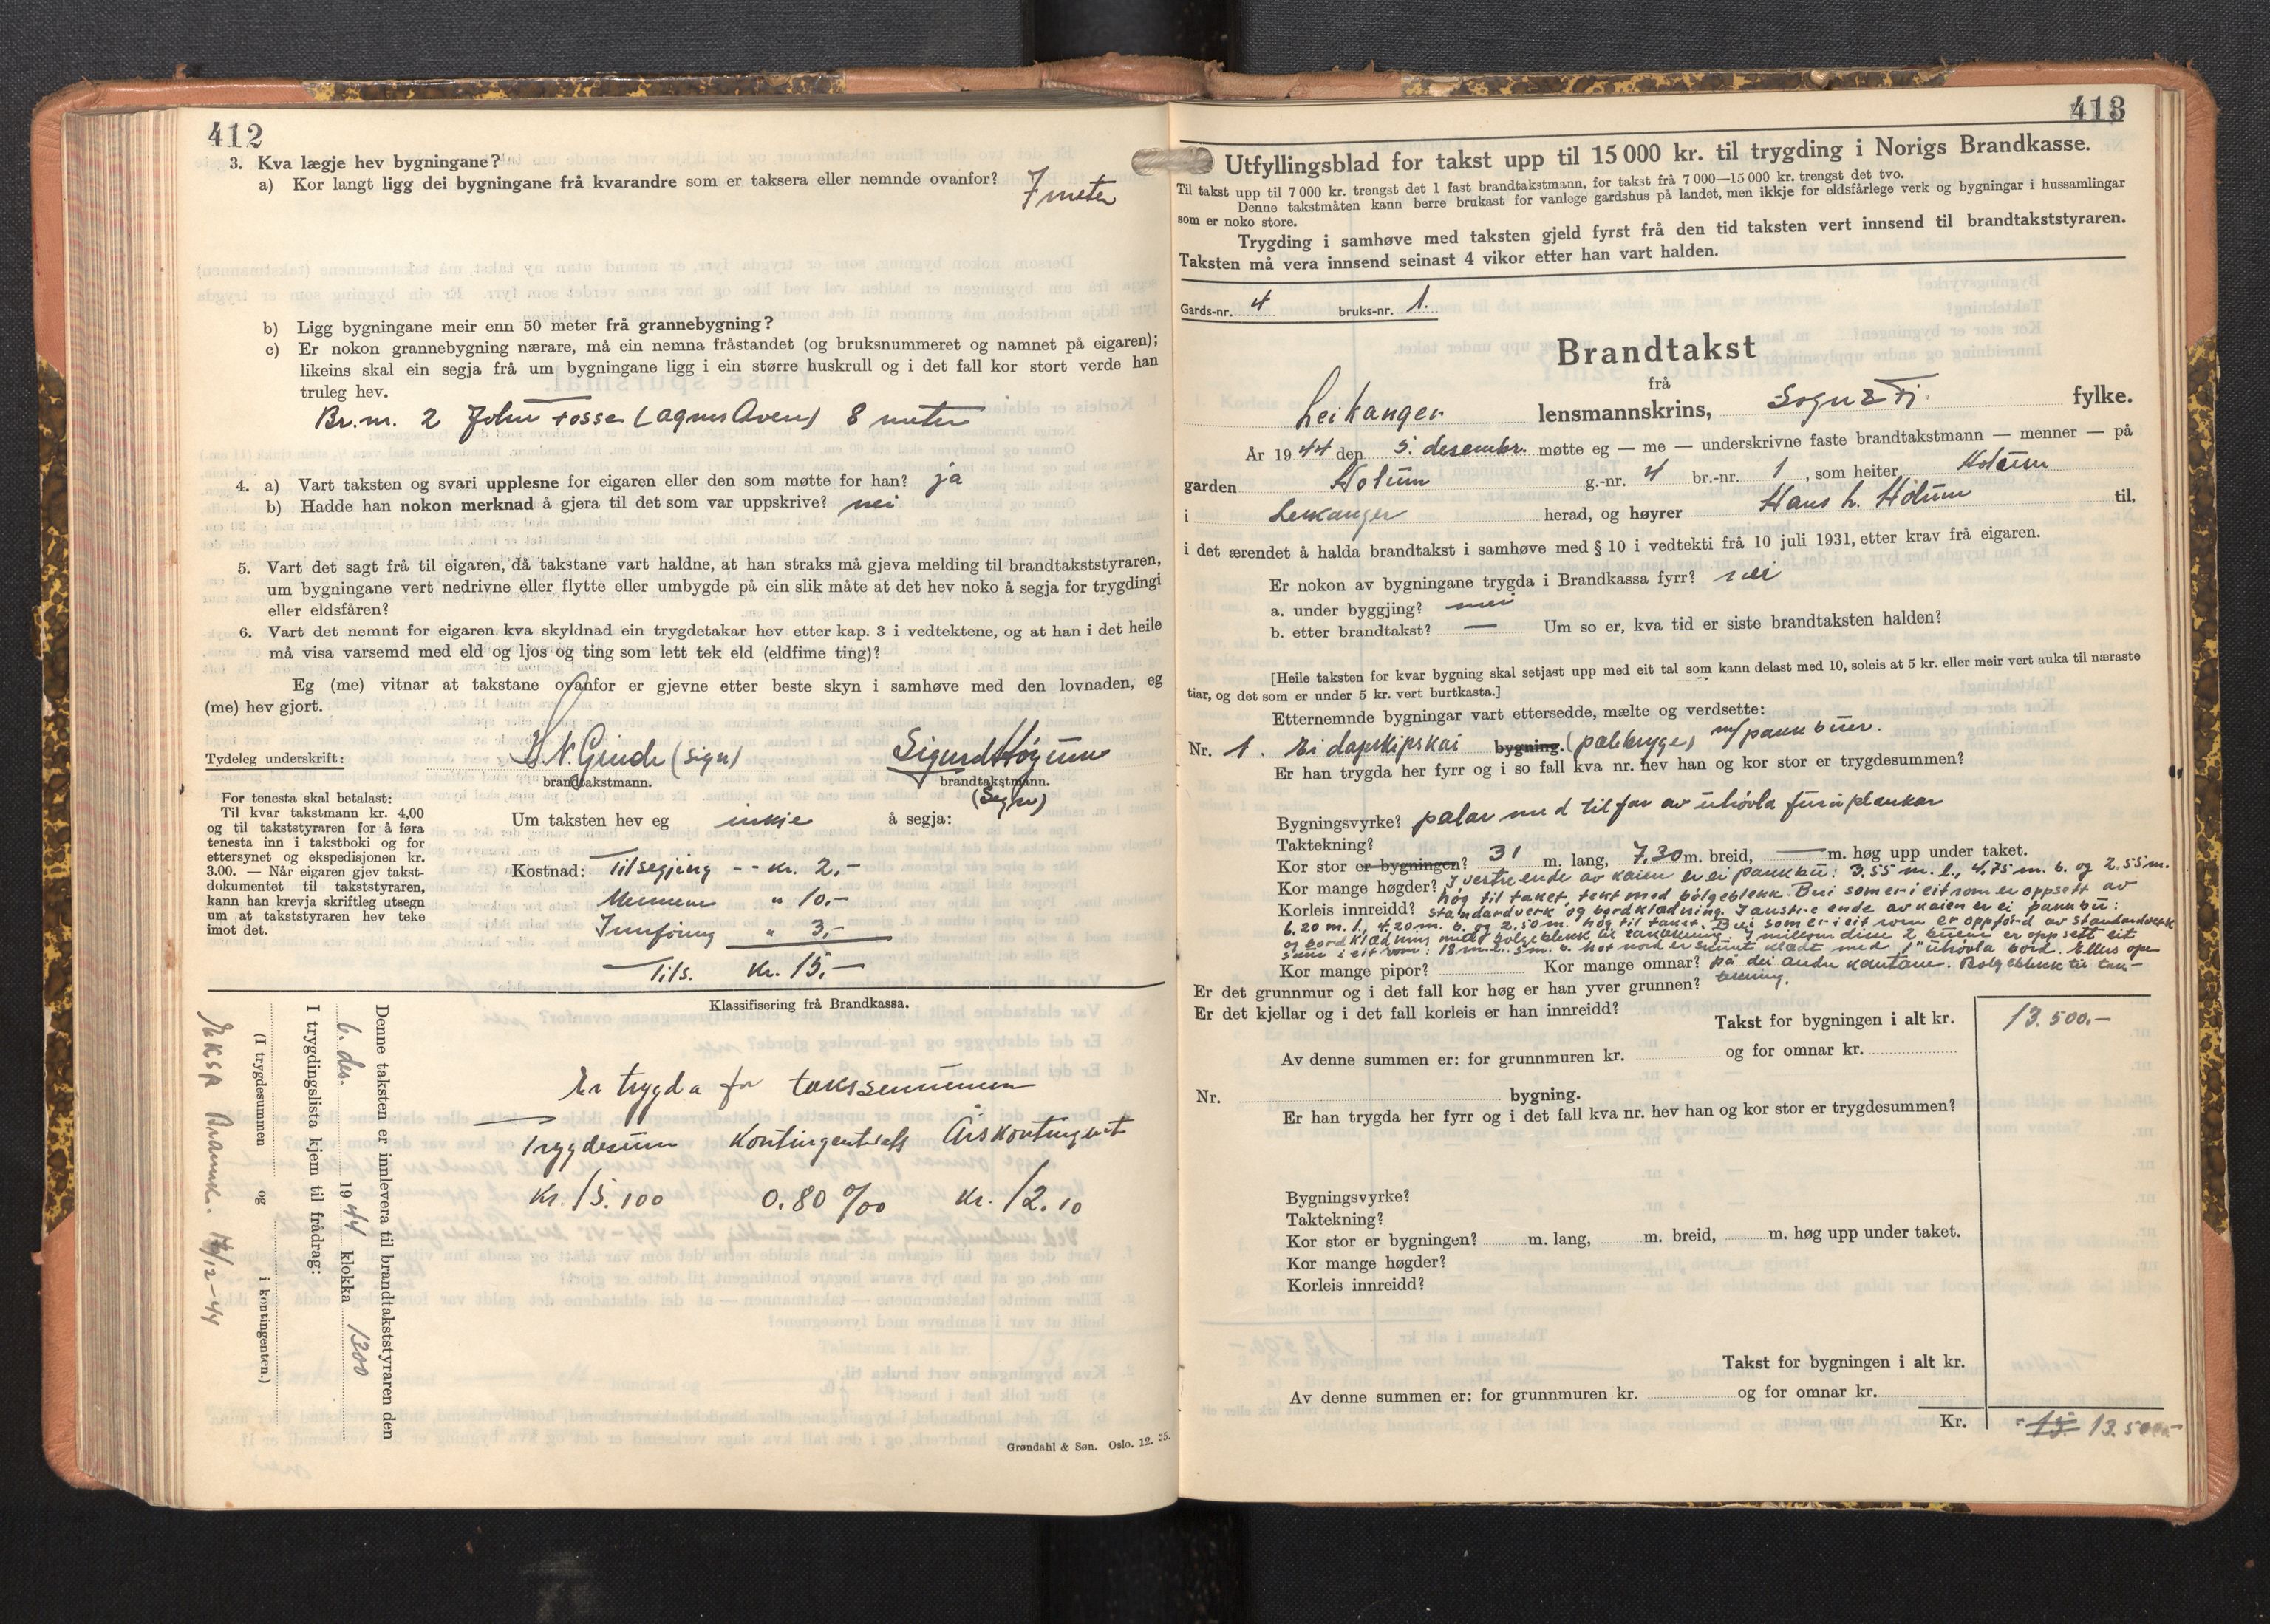 412
3. Kva lægje hev bygningane?
a) Kor langt ligg dei bygningane frå kvarandre som er taksera eller nemnde ovanfor? 7 meter
b) Ligg bygningane meir enn 50 meter frå grannebygning?
c) Er nokon grannebygning nærare, må ein nemna fråstandet (og bruksnummeret og namnet på eigaren);
likeins skal ein segja frå um bygningane ligg i ein større huskrull og i det fall kor stort verde han
truleg hev.
Br.nr. 2 John Fosse 8 meter
4. a) Vart taksten og svari upplesne for eigaren eller den som møtte for han? ja
b) Hadde han nokon merknad å gjera til det som var uppskrive? nei
5. Vart det sagt frå til eigaren, då takstane vart haldne, at han straks må gjeva melding til brandtakststyraren,
um bygningane vert nedrivne eller flytte eller umbygde på ein slik måte at det hev noko å segja for trygdingi
eller eldsfåren?
6. Vart det nemnt for eigaren kva skyldnad ein trygdetakar hev etter kap. 3 i vedtektene, og at han i det heile
må visa varsemd med eld og ljos og ting som lett tek eld (eldfime ting)?
Eg (me) vitnar at takstane ovanfor er gjevne etter beste skyn i samhøve med den lovnaden, eg
(me) hev gjort.
Tydeleg underskrift: H. N. Grinde (sign) Sigurd Høgum
brandtakstmann. brandtakstmann.
(Sign)
For tenesta skal betalast:
Til kvar takstmann kr. 4,00
og til takststyraren for å føra
tenesta inn i takstboki og for
ettersynet og ekspedisjonen kr.
3.00. — Når eigaren gjev takst-
dokumentet til takststyraren,
kann han krevja skriftleg utsegn
um at takststyraren hev teke
imot det.
Um taksten hev eg inkje å segja:
Kostnad: Tilsegjing -- kr. 2,-
Mennene " 10,-
Innføring " 3,-
Tils. kr. 15,-
Klassifisering frå Brandkassa.
Er trygda for takssummen
Trygdesum Kontingentsats Årskontingent
Kr. 15.100 0.80 o/oo kr. 12.10
Denne taksten er innlevera til brandtakststyraren den
6. des. 1944 klokka 1300
I trygdingslista kjem til frådrag:
(I trygdesummen og i kontingenten.)
12-44
Grøndahl & Søn. Oslo. 12. 35.
413
Utfyllingsblad for takst upp til 15 000 kr. til trygding i Norigs Brandkasse.
Til takst upp til 7 000 kr. trengst det 1 fast brandtakstmann, for takst frå 7 000—15 000 kr. trengst det tvo.
Denne takstmåten kann berre brukast for vanlege gardshus på landet, men ikkje for eldsfårlege verk og bygningar i hussamlingar
som er noko store.
Trygding i samhøve med taksten gjeld fyrst frå den tid taksten vert innsend til brandtakststyraren.
Taksten må vera innsend seinast 4 vikor etter han vart halden.
Gards-nr. 4 bruks-nr. 1.
Brandtakst
frå
Leikanger lensmannskrins, Sogn & Fj. fylke.
År 1944 den 5. desembr. møtte eg — me — underskrivne faste brandtakstmann — menner — på
garden Holum g.-nr. 4 br.-nr. 1, som heiter Holum
i Leikanger herad, og høyrer Hans L. Holum til,
i det ærendet å halda brandtakst i samhøve med § 10 i vedtekti frå 10 juli 1931, etter krav frå eigaren.
Er nokon av bygningane trygda i Brandkassa fyrr? nei
a. under byggjing? nei
b. etter brandtakst? — Um so er, kva tid er siste brandtaksten halden?
[Heile taksten for kvar bygning skal setjast upp med eit tal som kann delast med 10, soleis at 5 kr. eller meir vert auka til næraste
tiar, og det som er under 5 kr. vert burtkasta.]
Etternemnde bygningar vart ettersedde, mælte og verdsette:
Nr. 1. Ei dapskipskai bygning. (pælebrygge) m/pakkbuer.
Er han trygda her fyrr og i so fall kva nr. hev han og kor stor er trygdesummen?
Bygningsvyrke? palar med tilfar av uhövla furuplankar
Taktekning?
Kor stor er bygningen? 31 m. lang, 7,30 m. breid, — m. høg upp under taket.
Kor mange høgder? I vestre ende av kaien er ei pakkbu: 3.55 m. l., 4.75 m. b. og 2.55 m.
høg til taket, tekt med bølgeblekk. Bui som er i eit rom er oppsett av
Korleis innreidd? standardverk og bordklædning. I austre ende av kaien er ei pakkbu:
6.20 m. l. 4.20 m. b. og 2.50 m. høg til taket. Bui som er i eit rom er oppførd av standardverk
og bordklædning med bølgeblekk til taktekning. I millom disse 2 buene er oppsett eit
skur i eit rom: 18 m. l. 5 m. b. Mot nord er skuret klædt med 1" uhövla bord. Elles ope
Kor mange pipor? Kor mange omnar? på dei andre kantane. Bølgeblekk til tak-
tekning.
Er det grunnmur og i det fall kor høg er han yver grunnen?
Er det kjellar og i det fall korleis er han innreidd?
Takst for bygningen i alt kr. 13.500.-
Av denne summen er: for grunnmuren kr. og for omnar kr.
Nr. bygning.
Er han trygda her fyrr og i det fall kva nr. hev han og kor stor er trygdesummen?
Bygningsvyrke?
Taktekning?
Kor stor er bygningen? m. lang, m. breid, m. høg upp under taket.
Kor mange høgder?
Korleis innreidd?
Takst for bygningen i alt kr.
Av denne summen er: for grunnmuren kr. og for omnar kr.
Kr. 15. 13.500.-